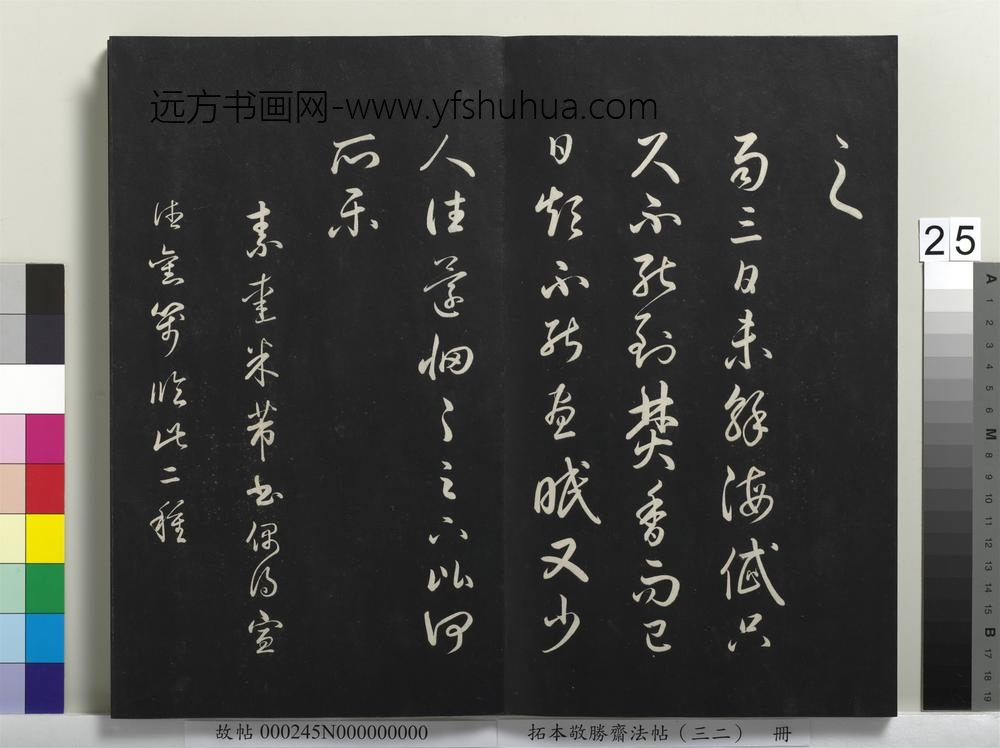 远方书画网-www.yfshuhua.com
之
雨三日未解海岱只
尺不能到焚香而已
日短不能晝眠又少
人往還惘〻足下比何
所樂
素米芾書偶得宣
德金箋臨此二種
25
A 1 2 3 4 5 M 8 9 10 11 12 13 14 15 B 17 18 19
故帖 000245N000000000
拓本敬勝齋法帖（三二） 冊